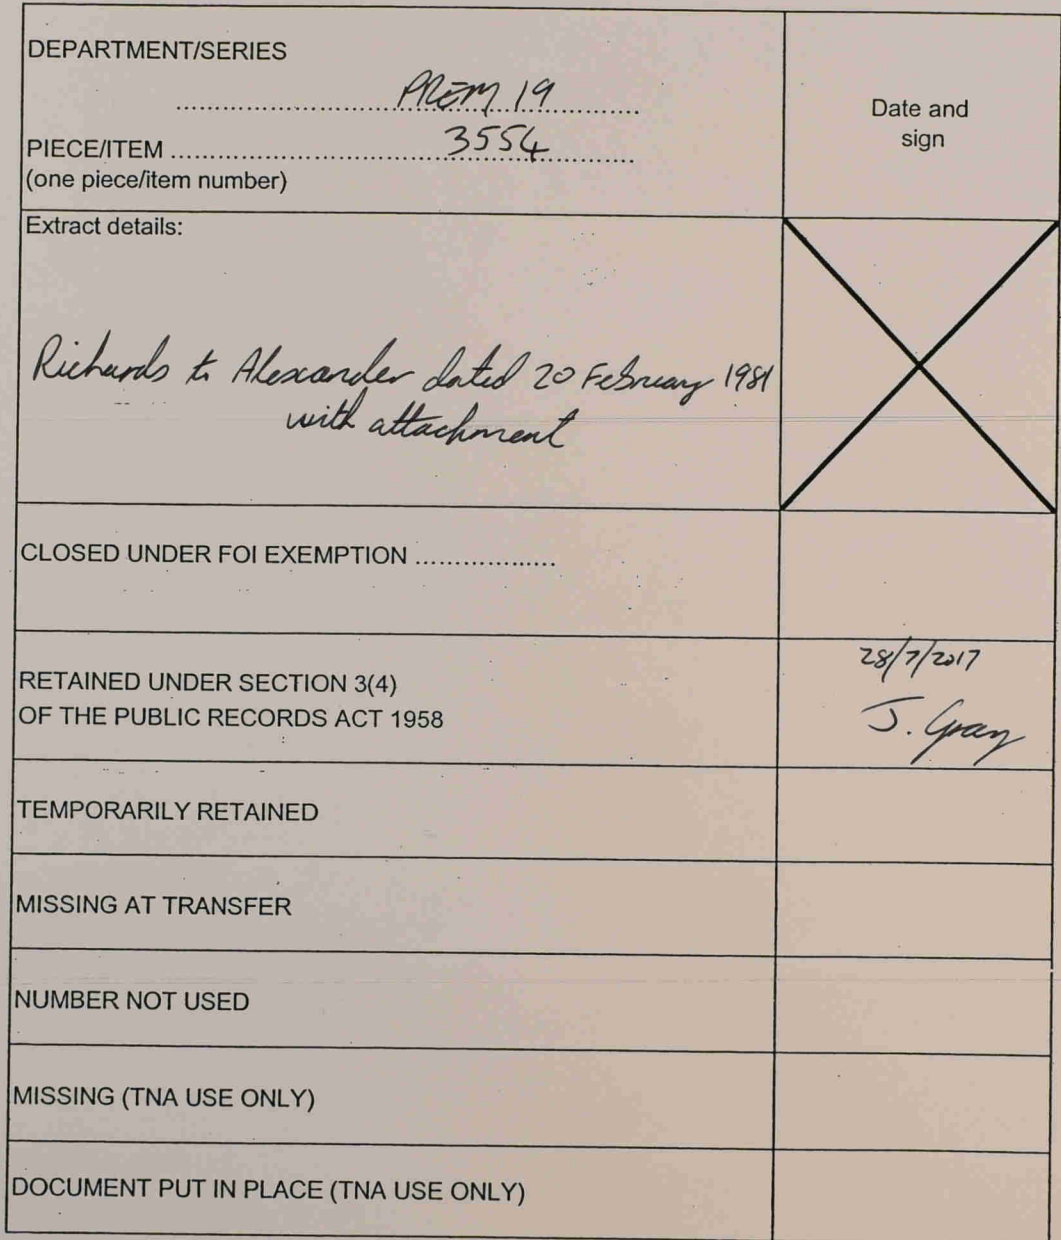 DEPARTMENT/SERIES
PREM 19
Date and
sign
PIECE/ITEM ........................................ 3554
(one piece/item number)
Extract details:
Richards to Alexander dated 20 February 1981
with attachment
CLOSED UNDER FOI EXEMPTION ..................
RETAINED UNDER SECTION 3(4)
OF THE PUBLIC RECORDS ACT 1958
28/7/2017
J. Gray
TEMPORARILY RETAINED
MISSING AT TRANSFER
NUMBER NOT USED
MISSING (TNA USE ONLY)
DOCUMENT PUT IN PLACE (TNA USE ONLY)